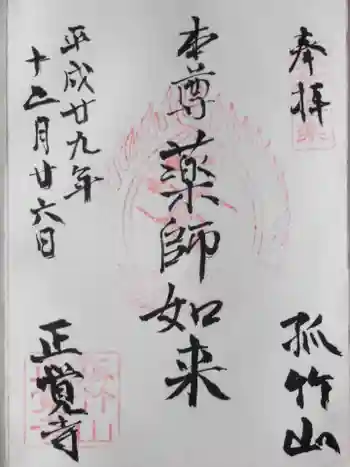 奉拝
孤竹山
本尊薬師如来
平成廿九年
十二月廿六日
正覚寺